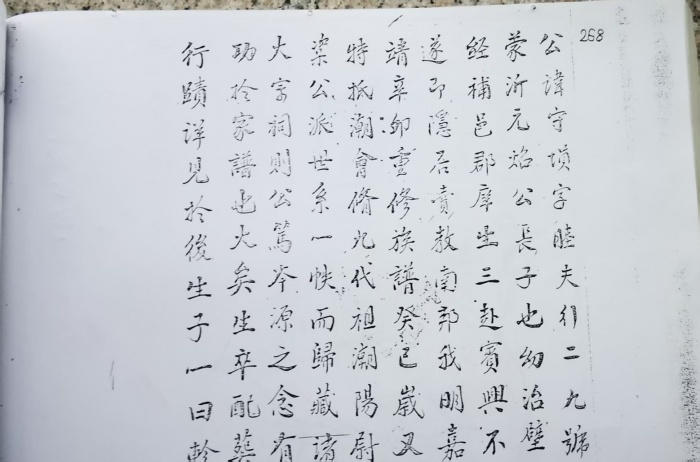 268
公諱宇塤字睦夫行二九號
蒙沂元焰公長子也幼治壁
經補邑郡庠生三赴賓興不
遂即隱居賣教南郭我明嘉
靖辛卯重修族譜癸巳歲又
特抵潮會脩九代祖潮陽尉
柒公派世系一帙而歸藏諸
大宗祠則公篤本源之念有
功於家譜也大矣生卒配葬
行蹟詳見於後生子一曰幹